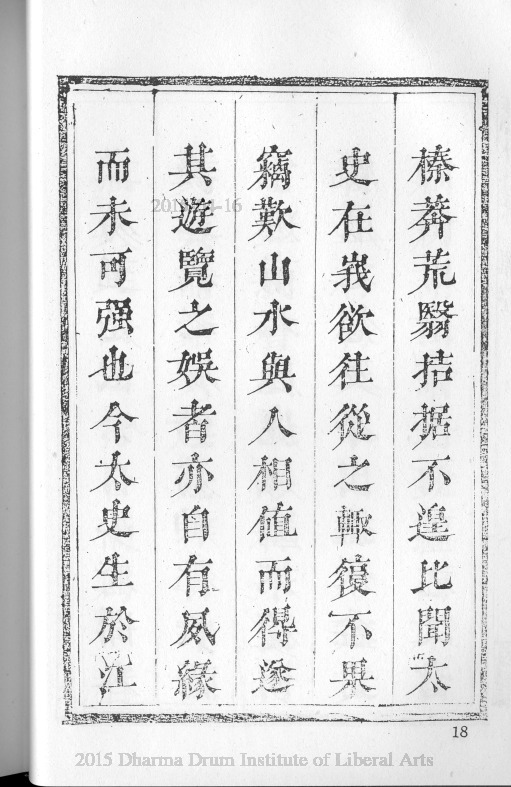 榛莽荒翳拮据不遑比聞太
史在峩欲往從之輙復不果
竊歎山水與人相值而得遂
其遊覽之娛者亦自有夙緣
而未可强也今太史生於江
18
2015 Dharma Drum Institute of Liberal Arts